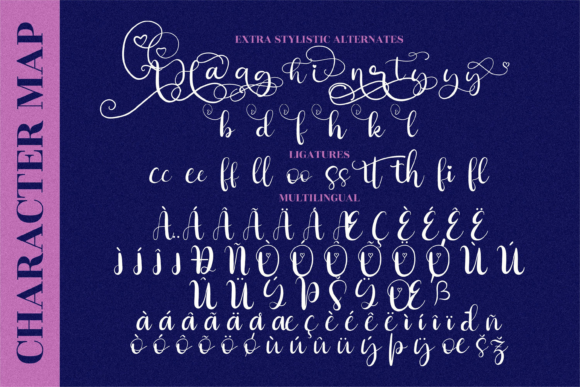 CHARACTER MAP
EXTRA STYLISTIC ALTERNATES
a a g h i n r t y y y
b d f h k l
LIGATURES
cc ee ff ll oo ss tt th fi fl
MULTILINGUAL
À Á Â Ã Ä Å Æ Ç È É Ê Ë
Ì Í Î Ï Ð Ñ Ò Ó Ô Õ Ö Ø Ù Ú
Û Ü Ý Þ Š Ÿ Œ ß
à á â ã ä å æ ç è é ê ë ì í î ï ð ñ
ò ó ô õ ö ø ù ú û ü ý þ ÿ œ š ž